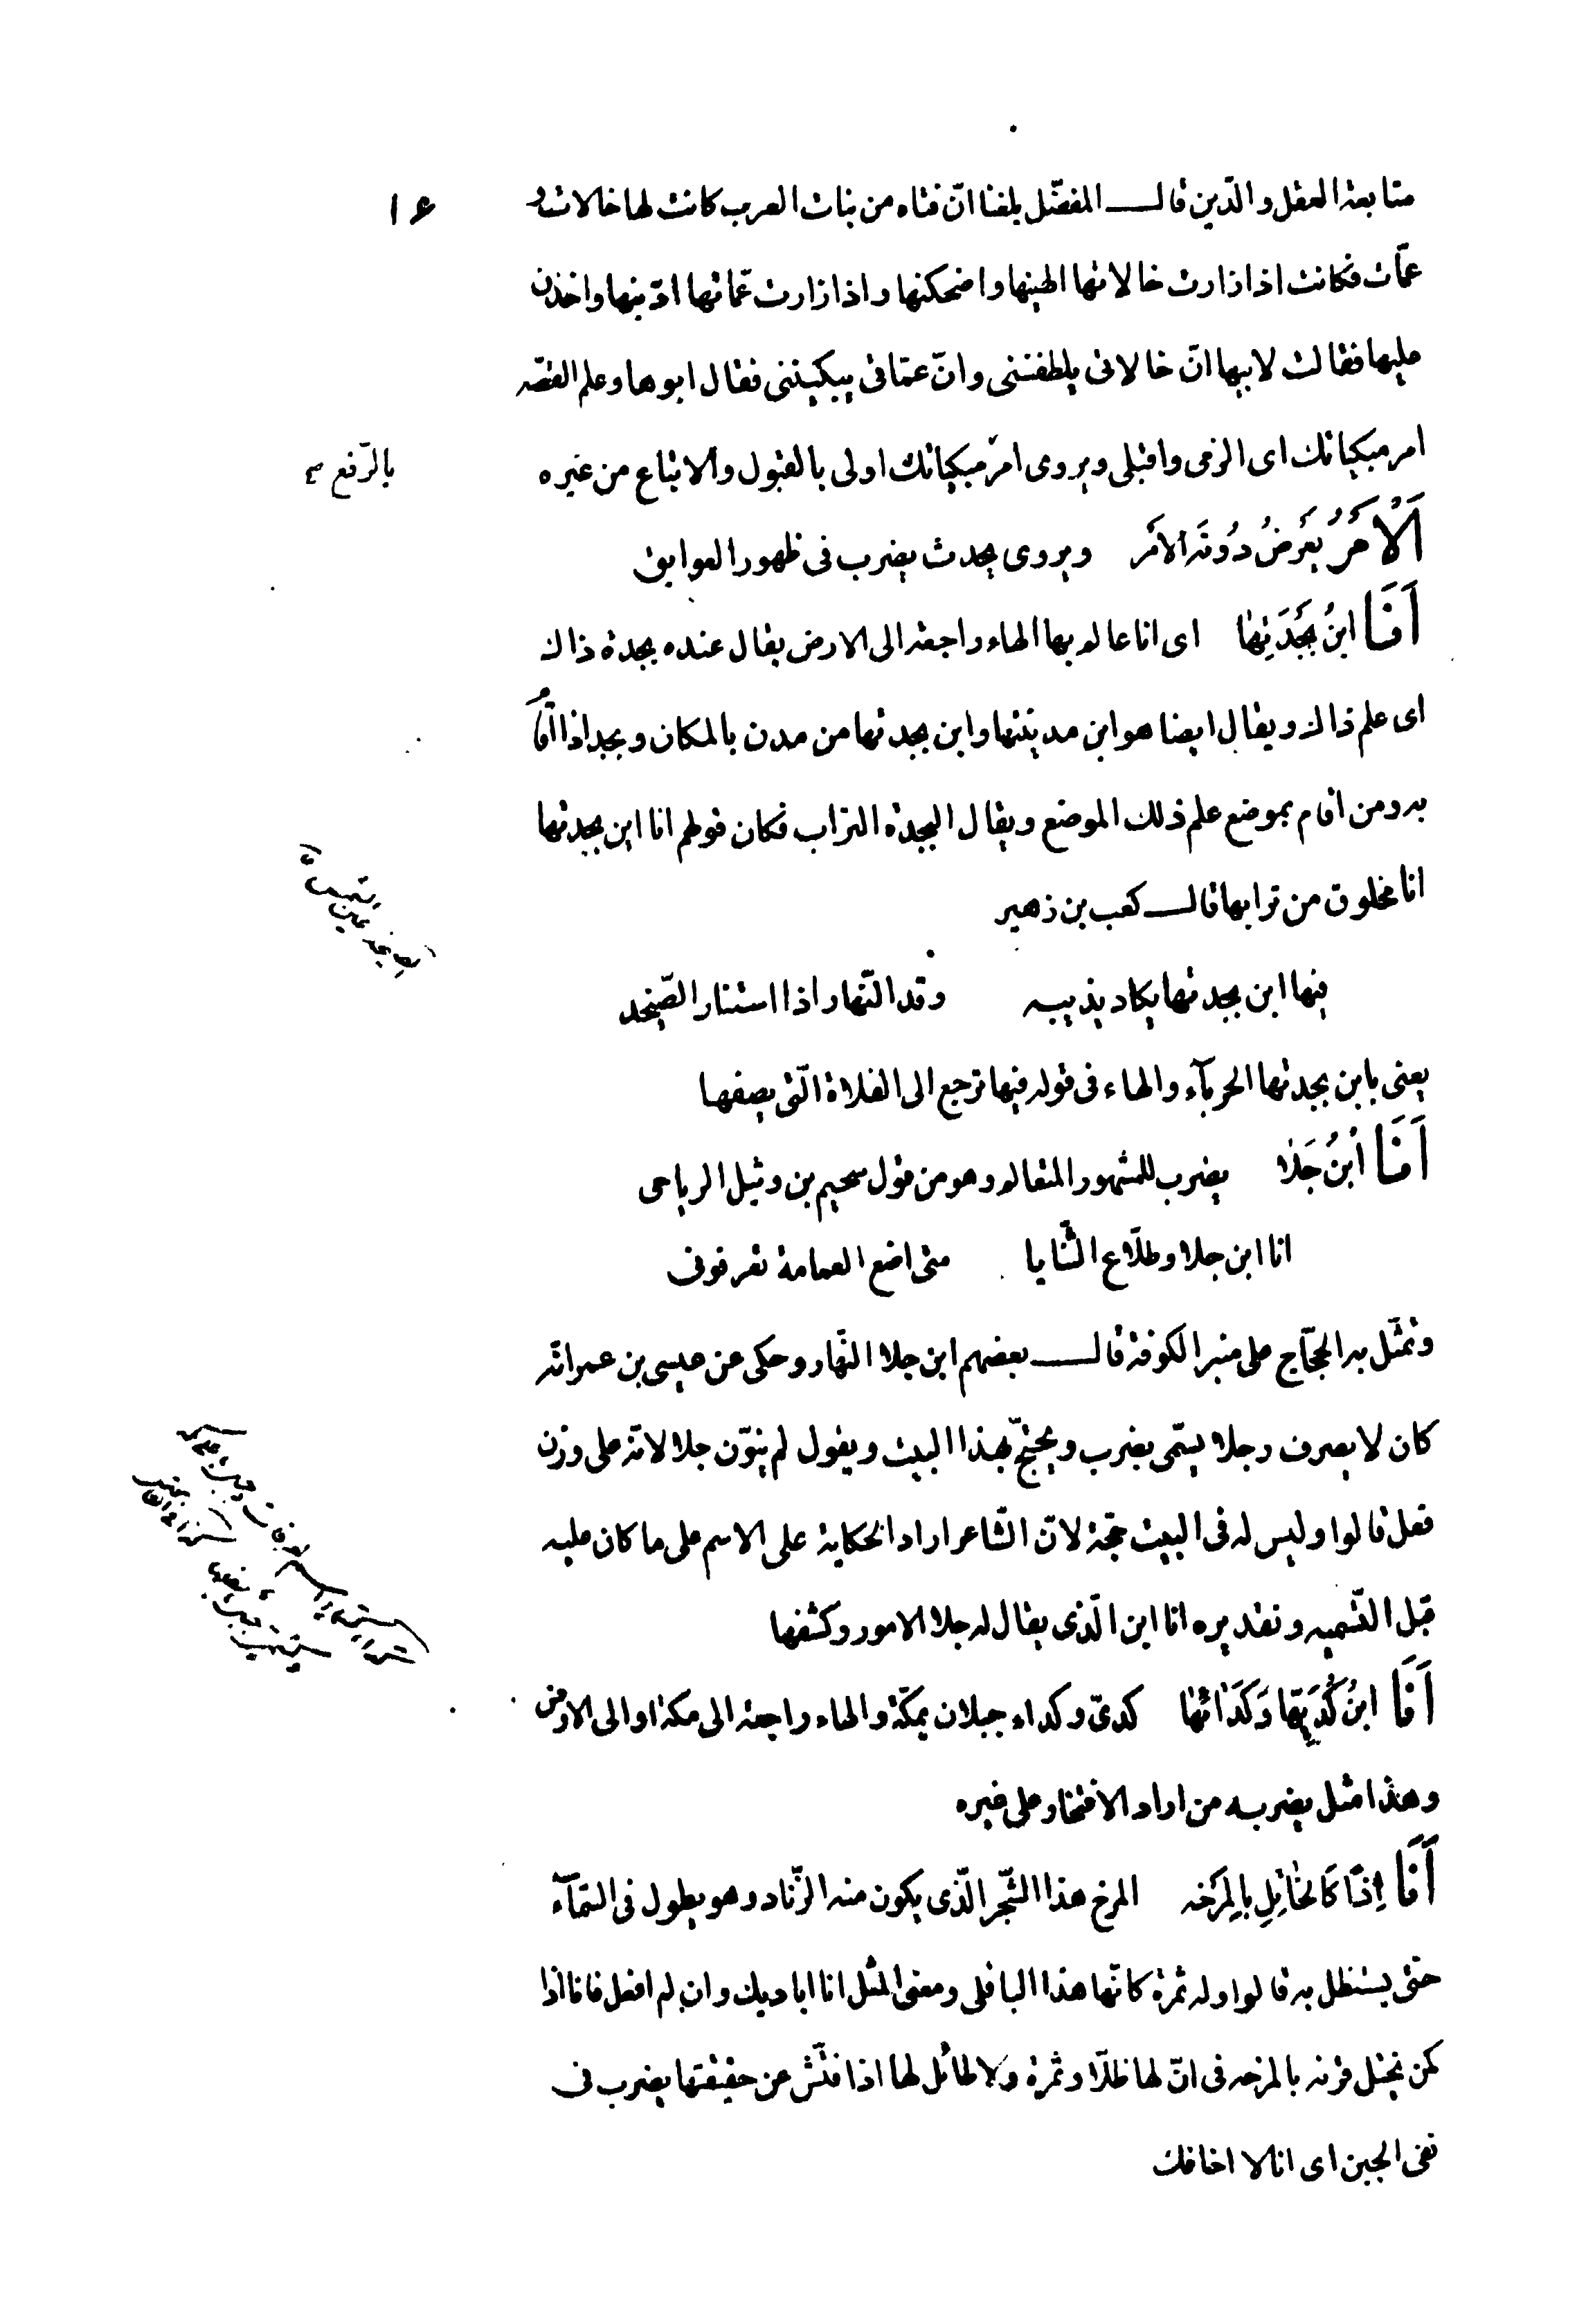 ١٦
متابعة العقل والدّين قال المفضّل بلغنا انّ فتاه من بنات العرب كانت لها خالات و
عمّات فكانت اذا زارت خالاتها الهينها واضحكنها واذا زارت عمّاتها ادّبنها واخذن
عليها فقالت لابيها انّ خالاتى يلطفننى وانّ عمّاتى يبكيننى فقال ابوها وعلم القصّه
امر مبكياتك اى الزمى واقبلى ويروى امرُ مبكياتك اولى بالقبول والاتباع من غيره
بالرّفع
اَلْاَمْرُ يَعْرِضُ دُونَهُ الاَمْر ويروى يحدث يضرب فى ظهور العوايق
اَنَا ابنُ بَجْدَتِهٰا اى انا عالم بها الهاء راجعة الى الارض يقال عنده بجدة ذاك
اى علم ذاك ويقال ايضا هو ابن مدينتها وابن بجدتها من مدن بالمكان وبجد اذا اقام
به ومن اقام بموضع علم ذلك الموضع ويقال البجدة التراب فكان قولهم انا ابن بجدتها
انا مخلوق من ترابها قال كعب بن زهير
فيها ابن بجدتها يكاد يذيبه وقد النّهار اذا استنار الصّيخد
الصيخد عين الشمس
يعنى بابن بجدتها الحربآء والهاء فى قوله فيها ترجع الى الفلاة الّتى يصفها
اَنَا اُبْنُ جَلٰا يضرب للمشهور المتعالم وهو من قول سحيم بن وثيل الرياحى
انا ابن جلا وطلّاع الثّنايا متى اضع العمامة تعرفونى
وتمثّل به الحجّاج على منبر الكوفة قال بعضهم ابن جلا النّهار وحكى عن عيسى بن عمر انّه
كان لا يصرف رجلا يسمّى بضرب ويحتجّ بهذا البيت ويقول لم ينوّن جلا لانّه على وزن
فعل قالوا وليس له فى البيت حجّة لانّ الشّاعر اراد الحكاية على الاسم على ما كان عليه
قبل التّسميه وتقديره انا ابن الّذى يقال له جلا الامور وكشفها
اَنَا ابنُ كُدَيِّهٰا وَكَدٰائِهٰا كدىّ وكداء جبلان بمكّة والهاء راجعة الى مكة او الى الارض
وهذا مثل يضربه من اراد الافتخار على غيره
اَنَا اِذًا كَالخٰاتِلِ بِالمَرْخَه المرخ هذا الشّجر الّذى يكون منه الزّناد وهو يطول فى السّمآء
حتّى يستظل به قالوا وله ثمرة كانّها هذا الباقلى ومعنى المثل انا اباديك وان لم افعل فانا اذا
كمن يختل قرنه بالمرخه فى انّ لها ظلّا وثمرة ولا طائل لها اذا فتّش عن حقيقتها يضرب فى
نفى الجبن اى انا لا اخافك